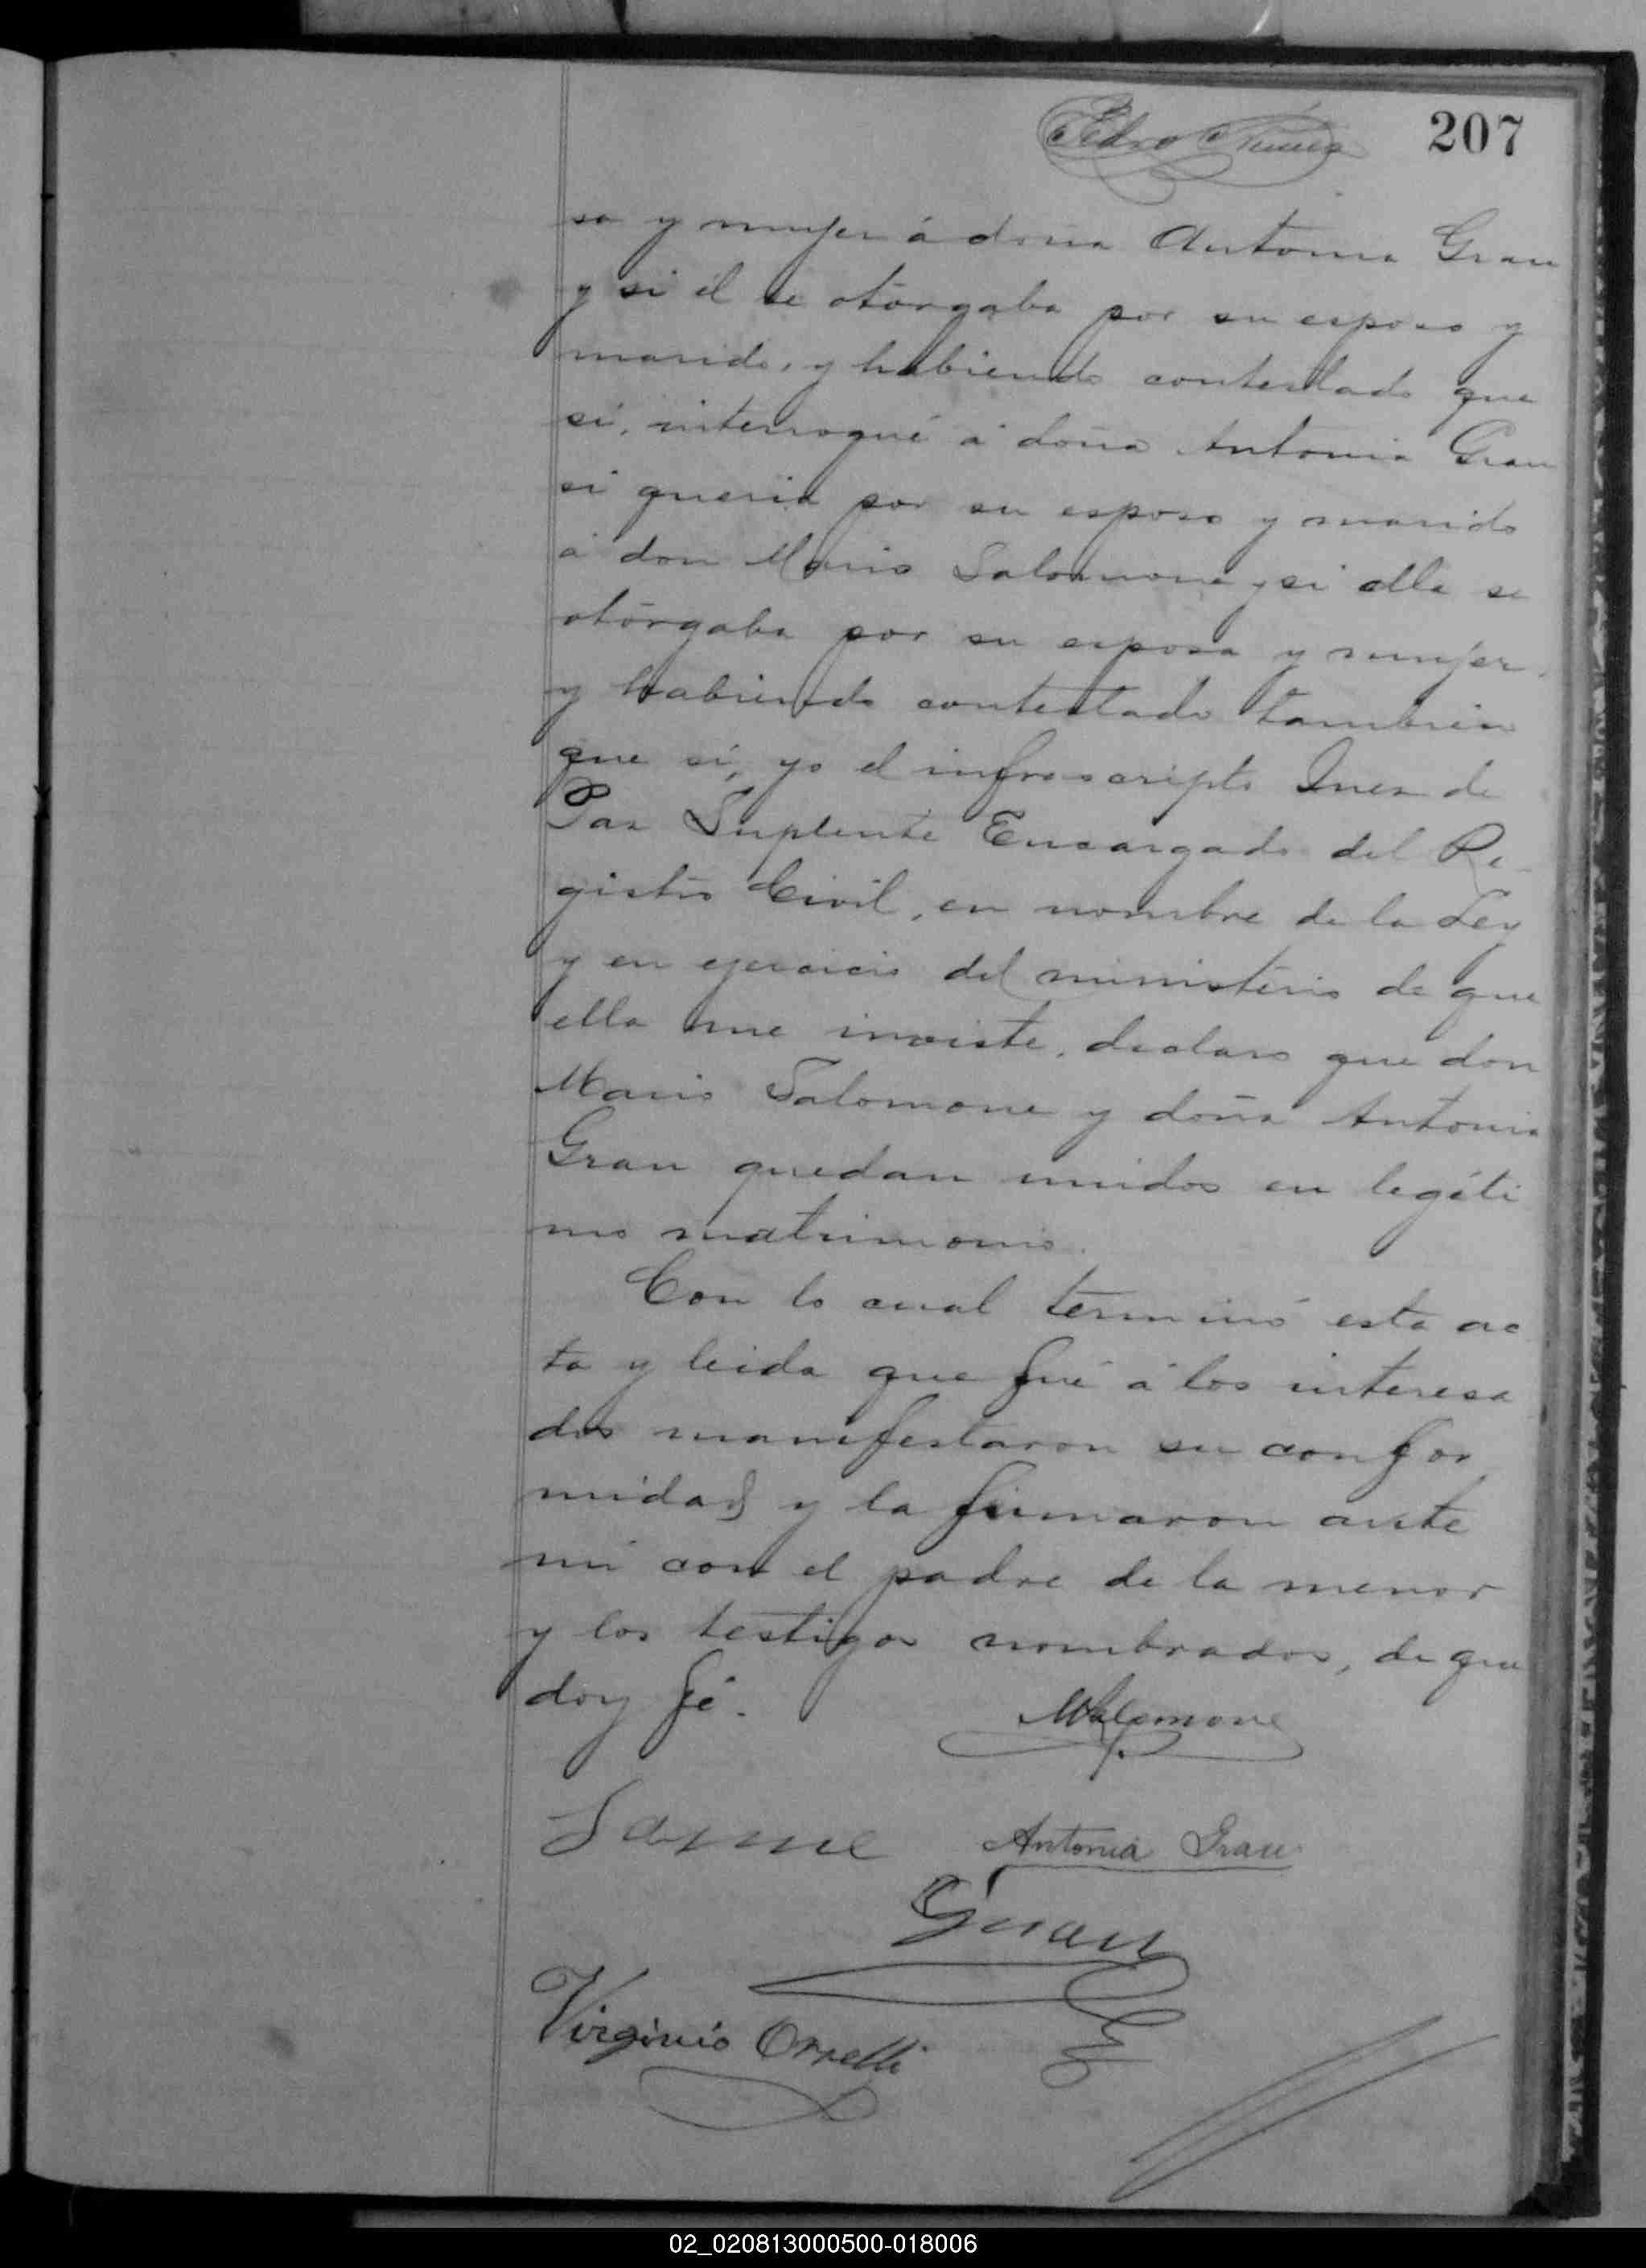 Pedro Nunez 207
sa y mujer á doña Antonia Grau
y si él se otórgaba por su esposo y
marido, y habiendo contestado que
sí, interrogué á doña Antonia Grau
si queria por su esposo y marido
á don Mario Salomone y si ella se
otórgaba por su esposa y mujer,
y habiendo contestado tambien
que sí, yo el infrascripto Juez de
Paz Suplente Encargado del Re-
gistro Civil, en nombre de la Ley
y en ejercicio del ministerio de que
ella me inviste, declaro que don
Mario Salomone y doña Antonia
Grau quedan unidos en legíti
mo matrimonio.
Con lo cual terminó esta ac
ta y leida que fué á los interesa
dos manifestaron su confor
midad y la firmaron ante
mi con el padre de la menor
y los testigos nombrados, de que
doy fé.
MSalomone
Antonia Grau
Grau
Virginio Orrelli
02_020813000500-018006